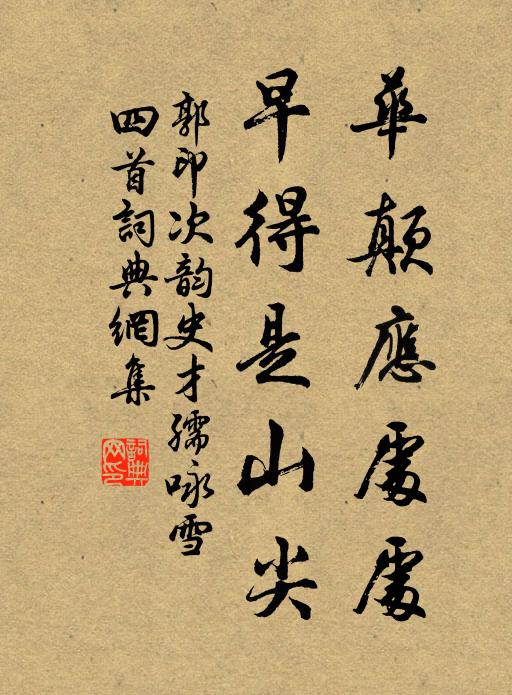 華顛應處處
早得是山尖
郭印次韵史才孺咏雪
四首詞典網集
詞典网印